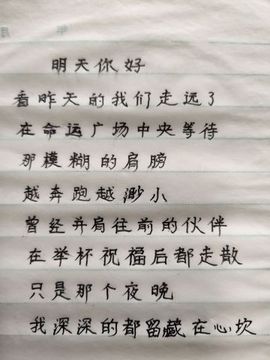 明天你好
看昨天的我们走远了
在命运广场中央等待
那模糊的肩膀
越奔跑越渺小
曾经并肩往前的伙伴
在举杯祝福后都走散
只是那个夜晚
我深深的都留藏在心坎